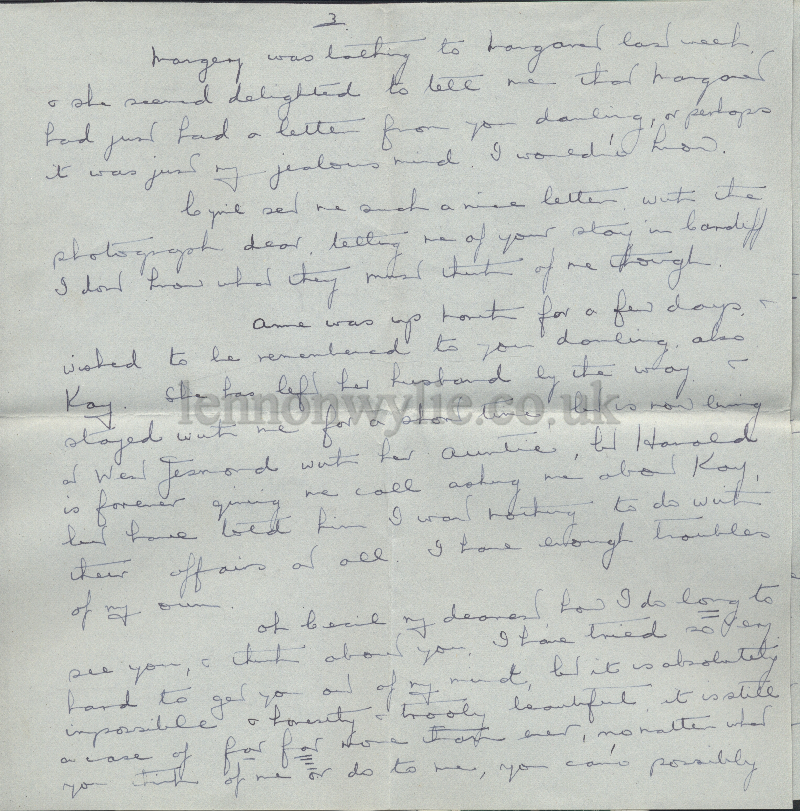 3.
Margery was talking to Margaret last week,
& she seemed delighted to tell me that Margaret
had just had a letter from you darling, or perhaps
it was just my jealous mind. I wouldn't know.
Cyril sent me such a nice letter with the
photograph dear, telling me of your stay in Cardiff
I don't know what they must think of me though.
Anne was up north for a few days, &
wished to be remembered to you darling, also
Kay. She has left her husband by the way &
lennonwylie.co.uk
stayed with me for a short time. He is now living
at West Jesmond with her Auntie, but Harold
is forever giving me call asking me about Kay,
but have told him I want nothing to do with
their affairs at all. I have enough troubles
of my own.
Oh Cecil my dearest, how I do long to
see you, & think about you. I have tried so very
hard to get you out of my mind, but it is absolutely
impossible & honestly & trooly beautiful, it is still
a case of far far more than ever, no matter what
you think of me or do to me, you can't possibly